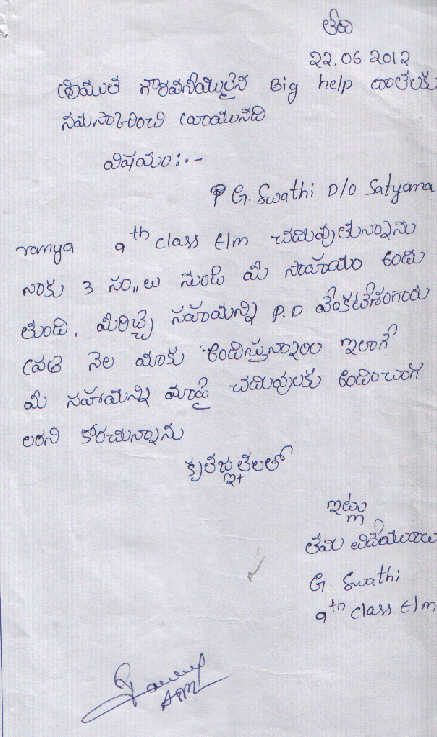 తేది
22.06 2012
శ్రీయుత గౌరవనీయులైన Big help దాతలకు
నమస్కరించి వ్రాయునది
విషయం:-
P G. Swathi D/o Satyana
ramya 9th class E/m చదువుతున్నాను
నాకు 3 సం,,లు నుండి మీ సహాయం అందు
తుంది. మీరిచ్చే సహయన్ని P.D వెంకటేశంగారు
ప్రతి నెల మాకు అందిస్తున్నారు ఇలాగే
మీ సహయన్ని మా పై చదువులకు అందించగ
లరని కోరచున్నాను
కృతజ్ఞతలతో
ఇట్లు
తమ విదేయురాలు
G. Swathi
9th class E/m